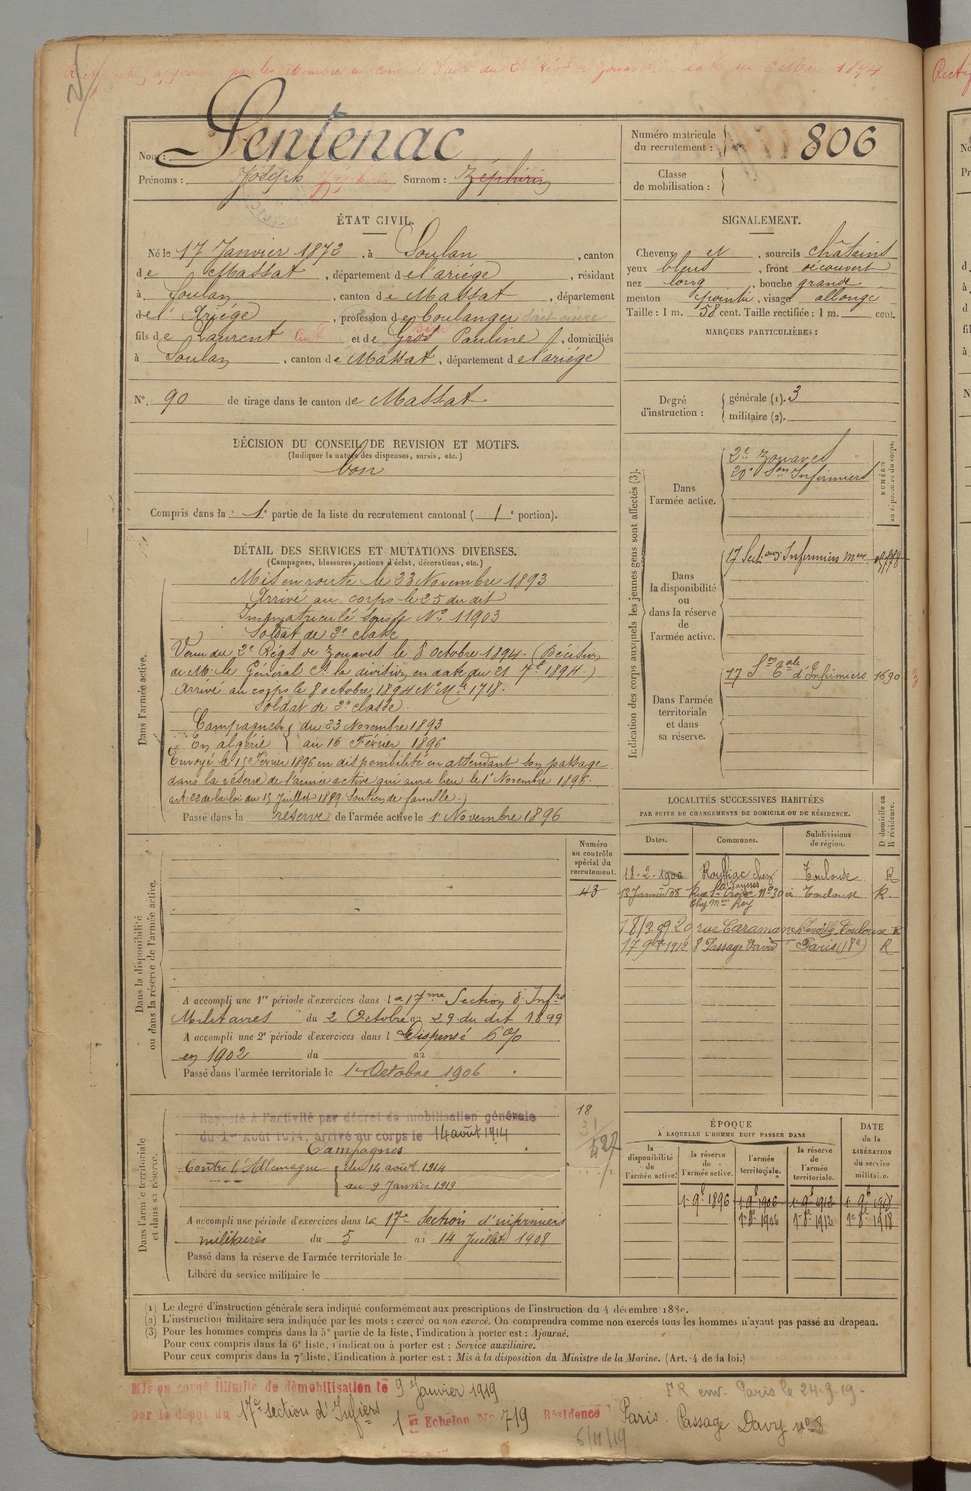 Sentenac
Nom :
Prénoms : Joseph Surnom : Zéphirin
Numéro matricule du recrutement : 806
Classe de mobilisation :
ÉTAT CIVIL.
Né le 17 Janvier 1872, à Soulan, canton
de Massat, département de l'ariège, résidant
à Soulan, canton de Massat, département
de l'Ariége, profession de boulanger
fils de Laurent et de Gros Pauline, domiciliés
à Soulan, canton de Massat, département de l'ariège
N°. 90 de tirage dans le canton de Massat
DÉCISION DU CONSEIL DE REVISION ET MOTIFS.
(Indiquer la nature des dispenses, sursis, etc.)
bon
Compris dans la 1e partie de la liste du recrutement cantonal ( 1e portion).
SIGNALEMENT.
Cheveux et, sourcils châtains
yeux bleus, front découvert
nez long, bouche grande
menton pointu, visage allongé
Taille : 1 m. 58 cent. Taille rectifiée : 1 m. cent.
MARQUES PARTICULIÈRES :
Degré d'instruction :
générale (1). 3
militaire (2).
DÉTAIL DES SERVICES ET MUTATIONS DIVERSES.
(Campagnes, blessures, actions d'éclat, décorations, etc.)
Dans l'armée active.
Mis en route le 23 Novembre 1893
Arrivé au corps le 25 du dit
Immatriculé sous le No 11903
Soldat de 2e classe
Venu du 2e Régt de Zouaves le 8 octobre 1894. (Décision
de Mr le Général Ct la division en date du 21 7bre 1894.)
Arrivé au corps le 8 octobre 1894 No Mle 1718.
Soldat de 2e classe.
Campagnes du 23 Novembre 1893
En algérie au 16 Février 1896
Envoyé le 15 Février 1896 en disponibilité en attendant son passage
dans la réserve de l'armée active qui aura lieu le 1er Novembre 1896.
art. 22 de la loi du 15 Juillet 1889 Soutien de famille.)
Passé dans la réserve de l'armée active le 1er Novembre 1896
Indication des corps auxquels les jeunes gens sont affectés (3).
Dans l'armée active.
2e Zouaves
20e Son Infirmiers
Dans la disponibilité ou dans la réserve de l'armée active.
17 Section Infirmiers Mres
Dans l'armée territoriale et dans sa réserve.
17 Son Tale d'Infirmiers 1690
NUMÉRO au répertoire du corps.
LOCALITÉS SUCCESSIVES HABITÉES
PAR SUITE DE CHANGEMENTS DE DOMICILE OU DE RÉSIDENCE.
Dates. Communes. Subdivisions de région. D domicile ou R résidence.
18-2-1900 Toulouse R
12 Janvier 08 No 30 à Toulouse R.
rue Caraman Toulouse R
1912 8 Passage David Paris R
Dans la disponibilité ou dans la réserve de l'armée active.
Numéro au contrôle spécial du recrutement.
43
A accompli une 1re période d'exercices dans la 17me Section d'Infres
Militaires du 2 Octobre au 29 du dit 1899
A accompli une 2e période d'exercices dans l Dispensé
en 1902 du au
Passé dans l'armée territoriale le 1er Octobre 1906
Dans l'armée territoriale et dans sa réserve.
Rappelé à l'activité par décret de mobilisation générale
du 1er Août 1914, arrivé au corps le 14 août 1914
Campagnes
Contre l'Allemagne du 14 août 1914
au 9 Janvier 1919
A accompli une période d'exercices dans la 17e Section d'infirmiers
militaires du 5 au 14 Juillet 1908
Passé dans la réserve de l'armée territoriale le
Libéré du service militaire le
ÉPOQUE
À LAQUELLE L'HOMME DOIT PASSER DANS
la disponibilité de l'armée active. la réserve de l'armée active. l'armée territoriale. la réserve de l'armée territoriale.
DATE de la LIBÉRATION du service militaire.
1 9b 1896 1 9b 1906 1 9b 1912 1 9b 1918
1906 1912 1918
(1) Le degré d'instruction générale sera indiqué conformément aux prescriptions de l'instruction du 4 décembre 1889.
(2) L'instruction militaire sera indiquée par les mots : exercé ou non exercé. On comprendra comme non exercés tous les hommes n'ayant pas passé au drapeau.
(3) Pour les hommes compris dans la 5e partie de la liste, l'indication à porter est : Ajourné.
Pour ceux compris dans la 6e liste, l'indication à porter est : Service auxiliaire.
Pour ceux compris dans la 7e liste, l'indication à porter est : Mis à la disposition du Ministre de la Marine. (Art. 4 de la loi.)
Mis en congé illimité de démobilisation le 9 Janvier 1919
par le dépôt du 17e section d'Infiers
1er Echelon No 719 Résidence Paris. Passage Davy no 8
FR env. Paris le 24-9-19.
6/11/19